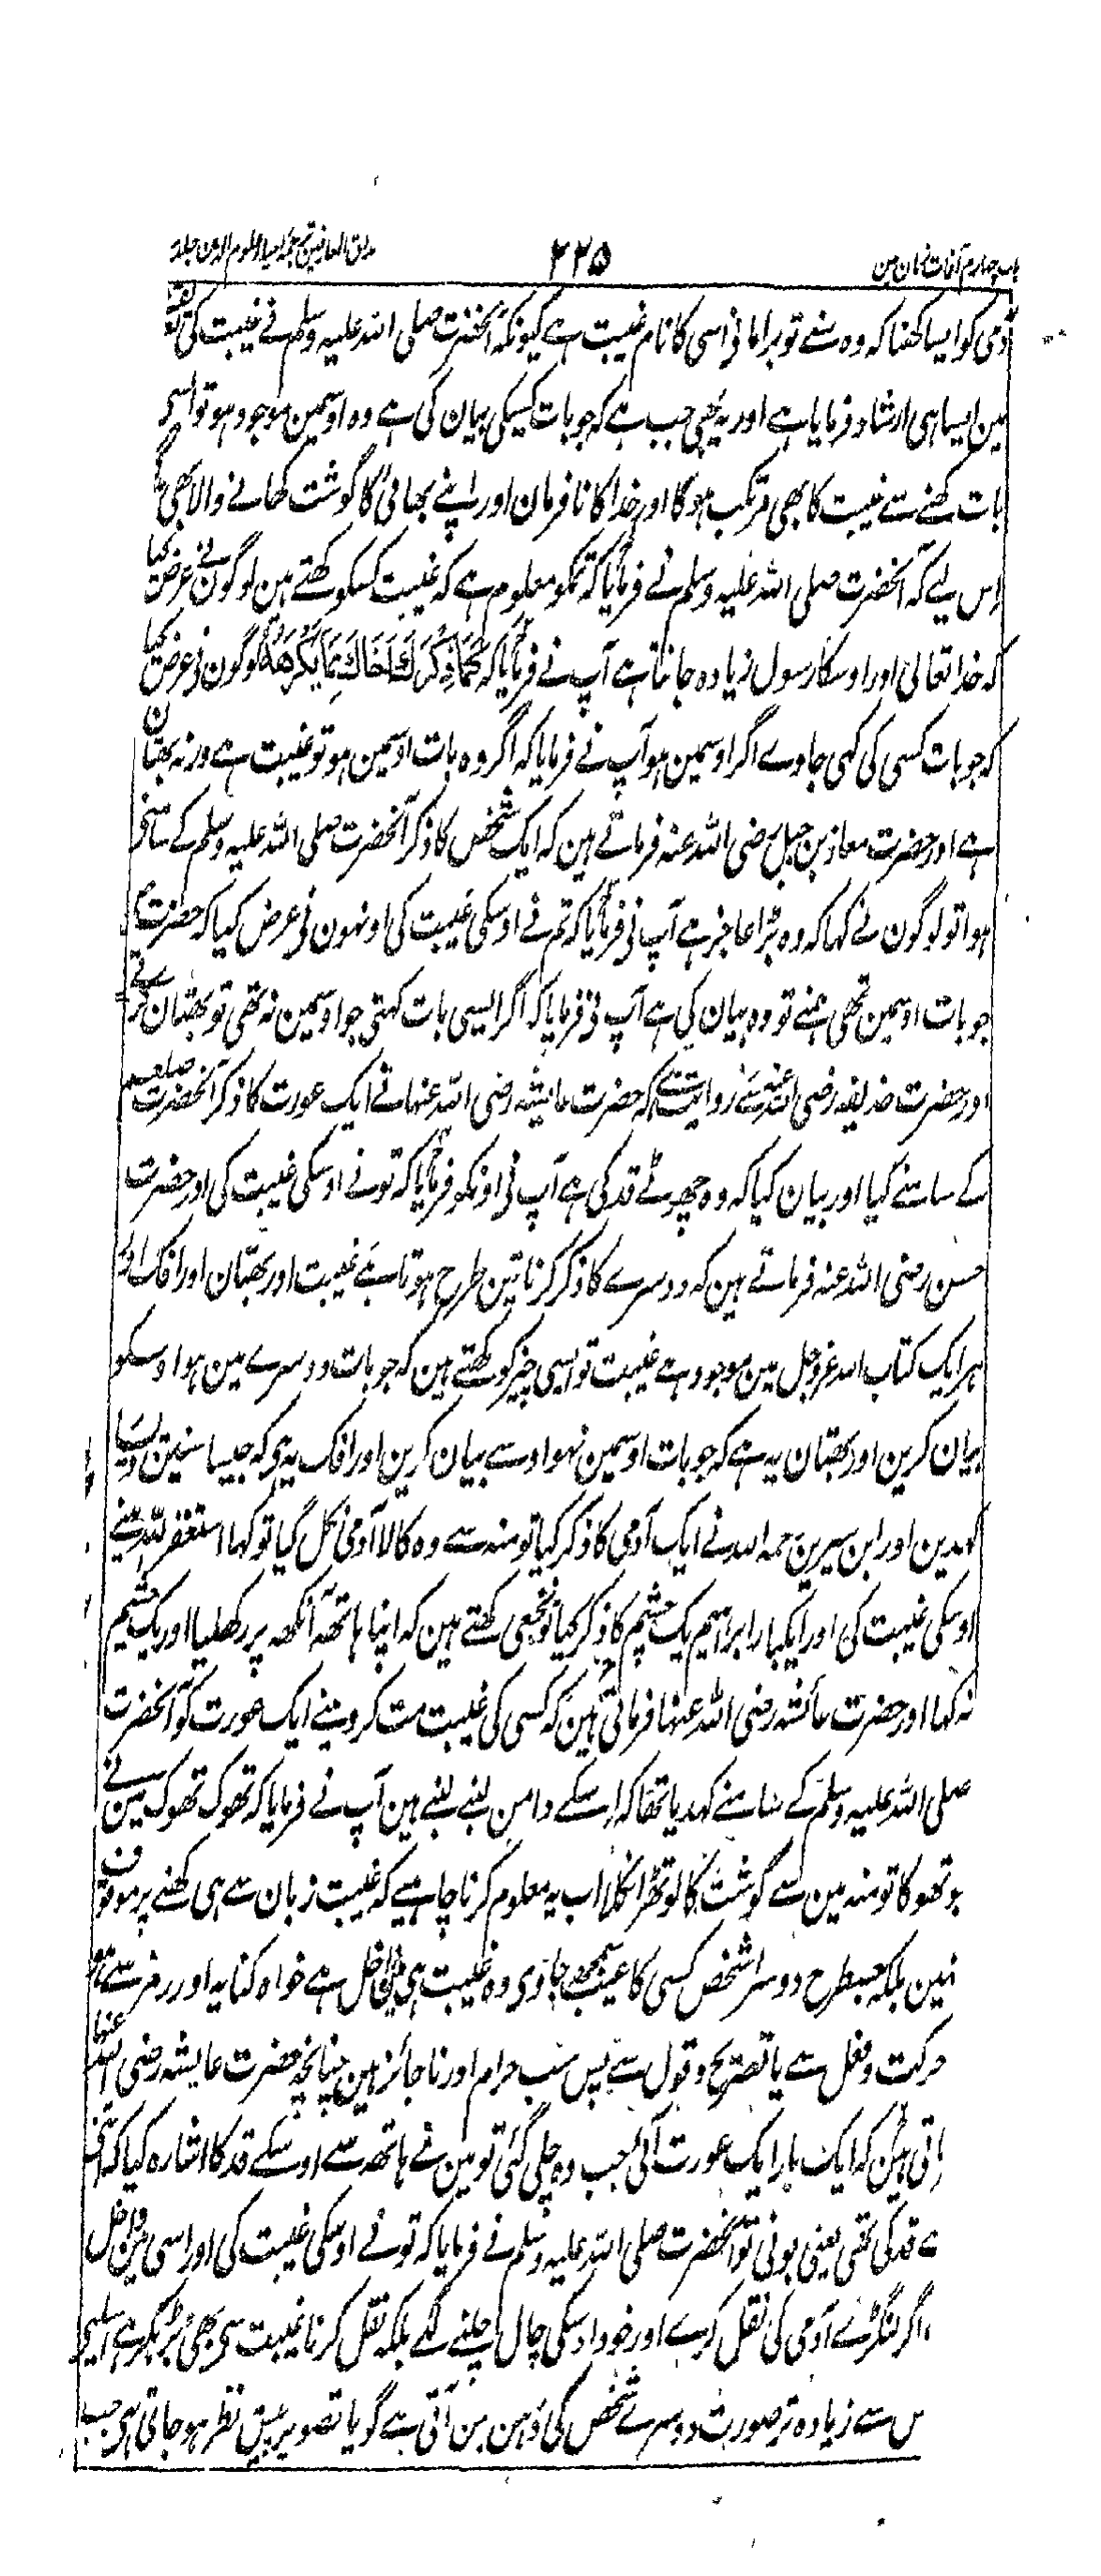 باب چہارم آفات زبان مین ۲۲۵ مذاق العارفین ترجمہ احیاء علوم الدین جلد
آدمی کو ایسا کہنا کہ وہ سنے تو برا مانی اسی کا نام غیبت ہے کیونکہ آنحضرت صلی اللہ علیہ وسلم نے غیبت کی تعریف
مین ایسا ہی ارشاد فرمایا ہے اور یہ بھی جب ہے کہ جو بات کسیکی بیان کی ہے وہ اوسمین موجود ہو تو ایسی
بات کہنے سے غیبت کا بھی مرتکب ہوگا اور خدا کا نافرمان اور اپنے بھائی کا گوشت کھانے والا بھی
اس لیے کہ آنحضرت صلی اللہ علیہ وسلم نے فرمایا کہ تمکو معلوم ہے کہ غیبت کسکو کہتے ہین لوگون نے عرض کیا
کہ خدا تعالی اور اوسکا رسول زیادہ جانتا ہے آپ نے فرمایا کہ ذِکْرُكَ اَخَاكَ بِمَا يَكْرَهُهُ لوگون نی عرض کیا
کہ جو بات کسی کی کہی جاوے اگر اوسمین ہو آپ نے فرمایا کہ اگر وہ بات اوسمین ہو تو غیبت ہے ورنہ بہتان
ہے اور حضرت معاذ بن جبل رضی اللہ عنہ فرماتے ہین کہ ایک شخص کا ذکر آنحضرت صلی اللہ علیہ وسلم کے سامنے
ہوا تو لوگون نے کہا کہ وہ بڑا عاجز ہے آپ نی فرمایا کہ تم نے اوسکی غیبت کی اونہون نی عرض کیا کہ حضرت
جو بات اوسمین تھی ہمنے تو وہ بیان کی ہے آپ نی فرمایا کہ اگر ایسی بات کہتی جو اوسمین نہ تھی تو بہتان کرتے
اور حضرت حذیفہ رضی اللہ عنہ سے روایت ہے کہ حضرت عایشہ رضی اللہ عنہا نے ایک عورت کا ذکر آنحضرت صلعم
کے سامنے کیا اور بیان کیا کہ وہ چھوٹے قد کی ہے آپ نی اونکو فرمایا کہ تونے اوسکی غیبت کی اور حضرت
حسن رضی اللہ عنہ فرماتے ہین کہ دوسرے کا ذکر کرنا تین طرح ہوتا ہے غیبت اور بہتان اور افک اور
ہر ایک کتاب اللہ عزوجل مین موجود ہے غیبت تو ایسی چیز کو کہتے ہین کہ جو بات دوسرے مین ہو اوسکو
بیان کرین اور بہتان یہ ہے کہ جو بات اوسمین نہو اوسے بیان کرین اور افک یہ ہی کہ جیسا سنین ویسا
کہدین اور ابن سیرین رحمہ اللہ نے ایک آدمی کا ذکر کیا تو منہ سے وہ کالا آدمی نکل گیا تو کہا استغفر اللہ مینے
اوسکی غیبت کی اور ایکبار ابراہیم یک چشم کا ذکر کیا تو نخعی کہتے ہین کہ اپنا ہاتھ آنکھ پر رکھ لیا اور یک چشم
نہ کہا اور حضرت عائشہ رضی اللہ عنہا فرماتی ہین کہ کسی کی غیبت مت کرو مینے ایک عورت کو آنحضرت
صلی اللہ علیہ وسلم کے سامنے کہدیا تھا کہ اسکے دامن لنبے لنبے ہین آپ نے فرمایا کہ تھوک تھوک مین نے
جو تھوکا تو منہ مین سے گوشت کا لوتھڑا نکلا اب یہ معلوم کرنا چاہیے کہ غیبت زبان سے ہی کہنے پر موقوف
نہین بلکہ جسطرح دوسرا شخص کسی کا عیب سمجھ جاوی وہ غیبت ہی مین داخل ہے خواہ کنایہ اور رمز سے ہو
حرکت و فعل سے یا تصریح و قول سے پس سب حرام اور ناجائز ہین چنانچہ حضرت عایشہ رضی اللہ عنہا
راتی ہین کہ ایک بار ایک عورت آئی جب وہ چلی گئی تو مین نے ہاتھ سے اوسکے قد کا اشارہ کیا کہ
ے قد کی تھی یعنی بونی تو آنحضرت صلی اللہ علیہ وسلم نے فرمایا کہ تونے اوسکی غیبت کی اور اسی مین داخل
اگر لنگڑے آدمی کی نقل کرے اور خود اوسکی چال چلنے لگے بلکہ نقل کرنا غیبت سی بھی بڑھکر ہے اسلیے
س سے زیادہ تر صورت دوسرے شخص کی ذہن مین آتی ہے گویا تصویر پیش نظر ہو جاتی ہی جب